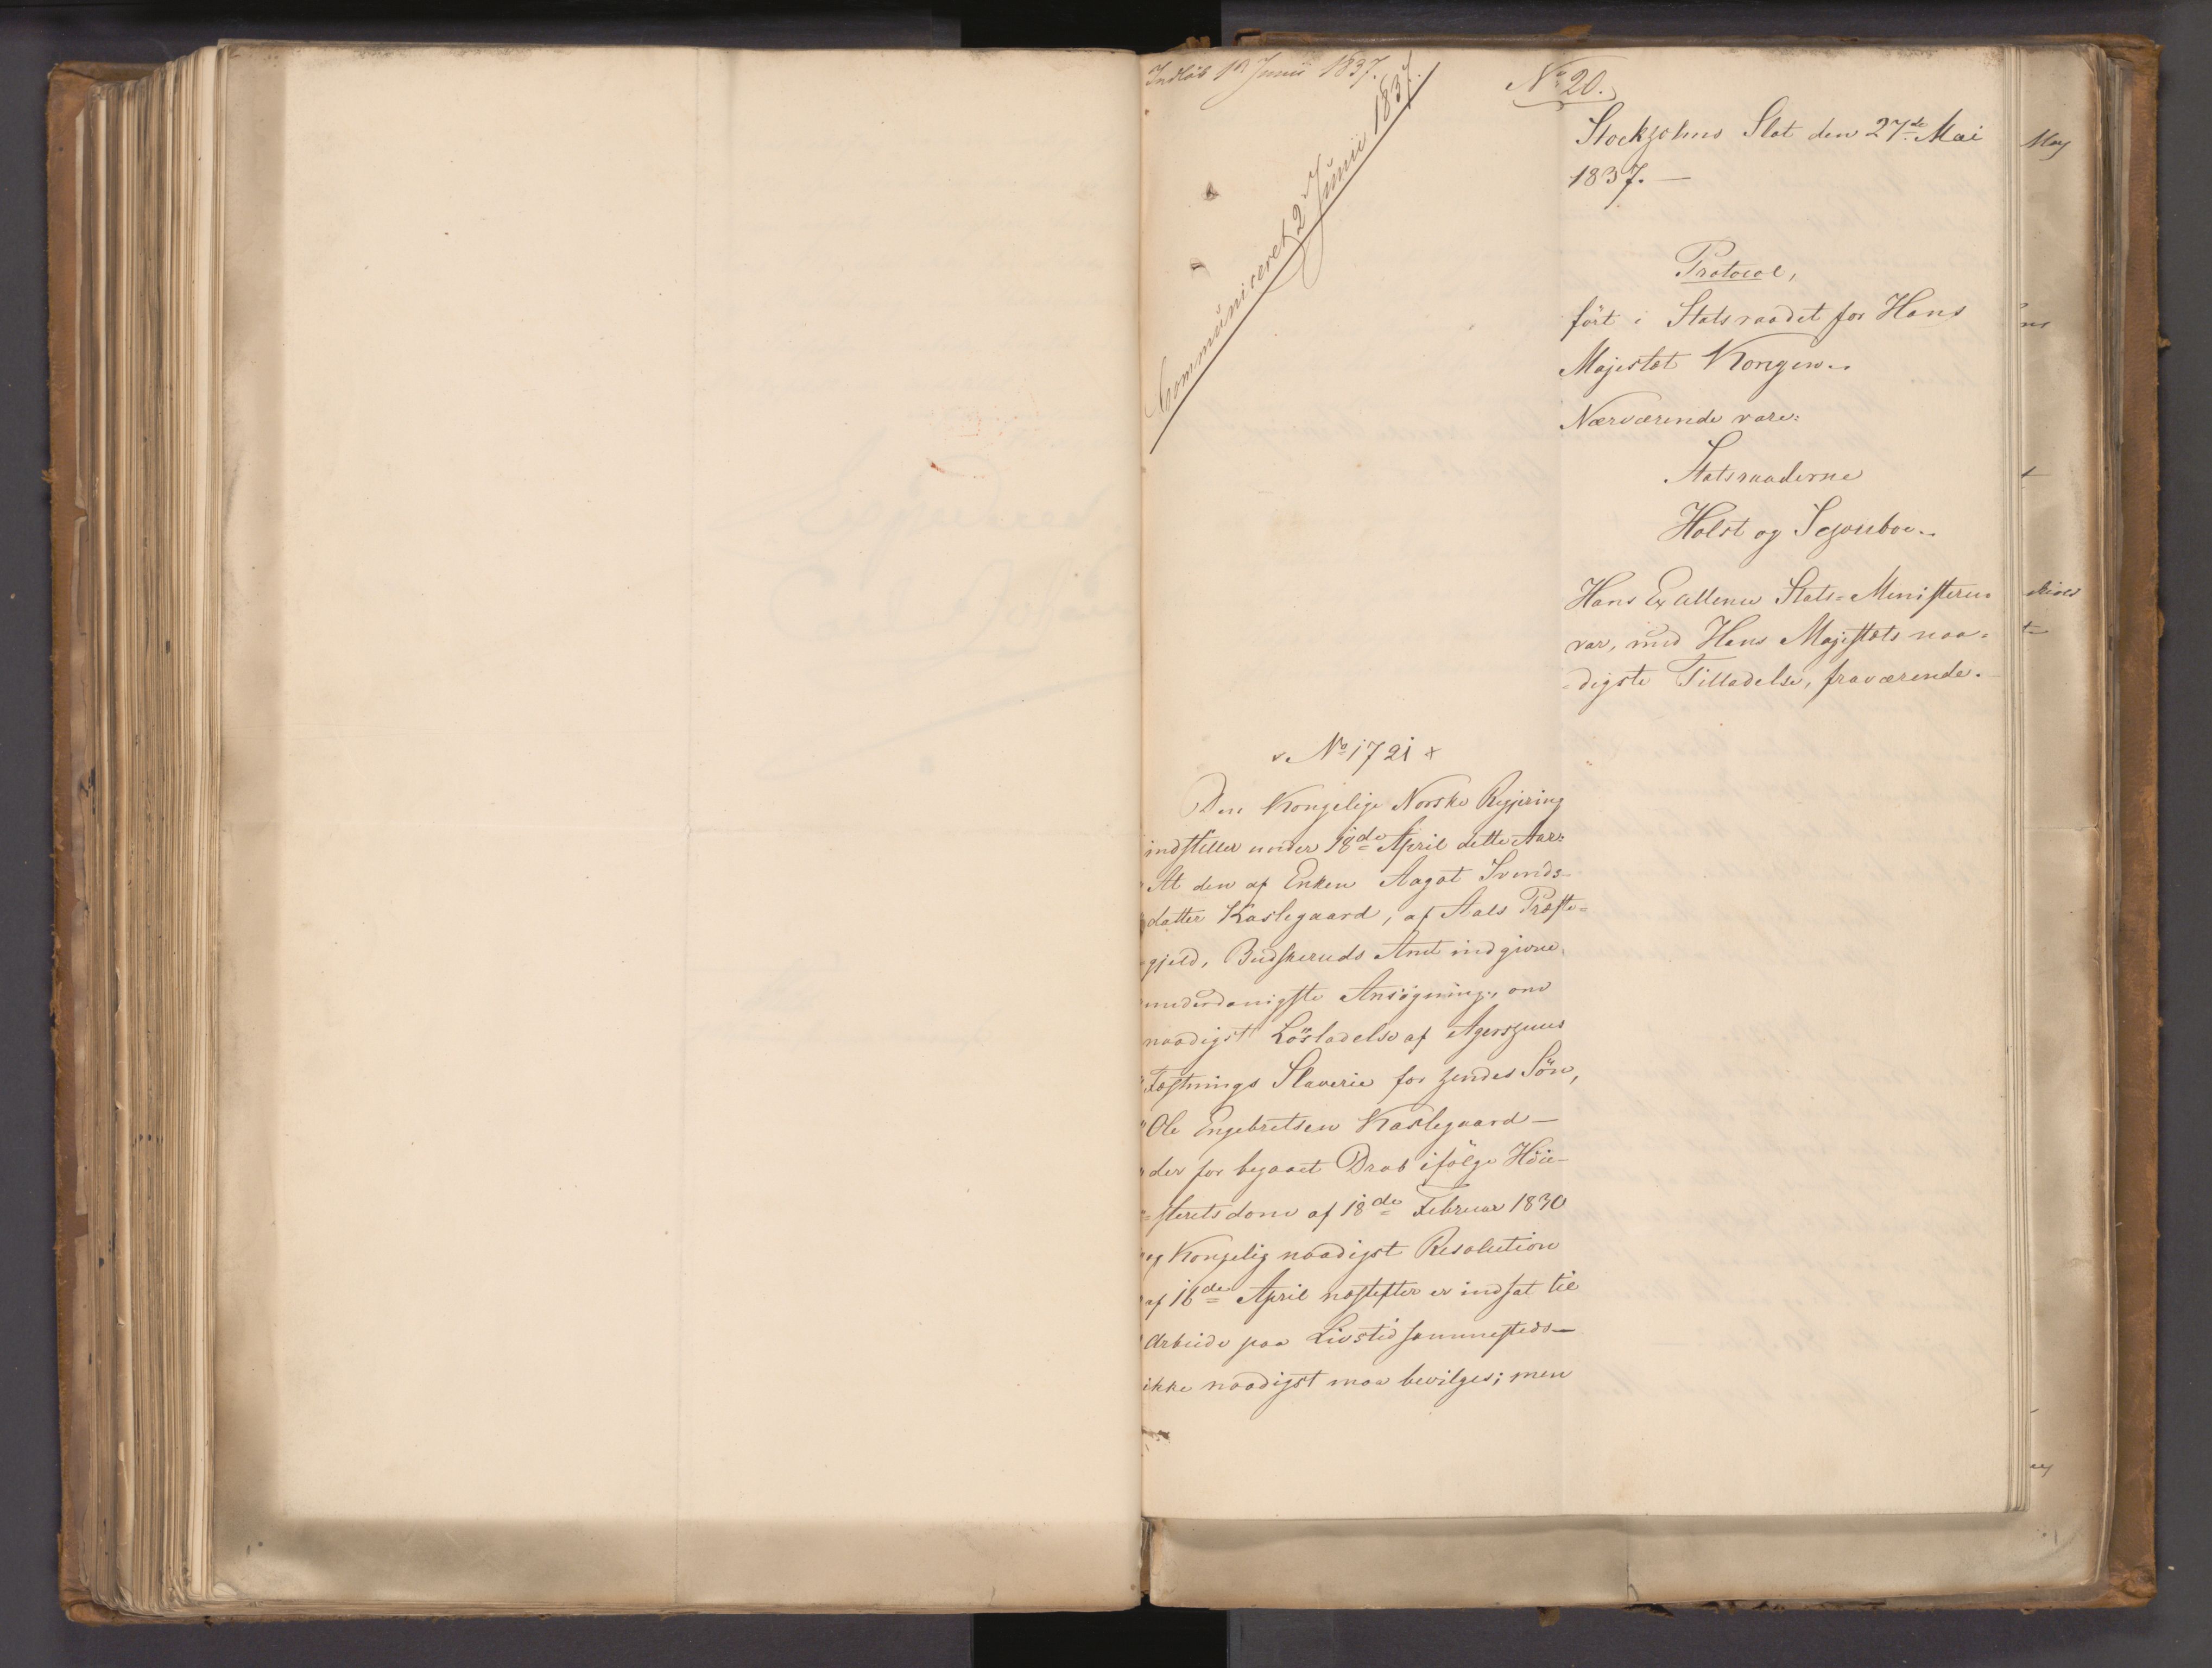 Indløb 1ste Junii 1837.
Communiceret 2 Junii 1837.
No 20.
Stockholms Slot den 27de Mai
1837. —
Protocol,
ført i Statsraadet for Hans
Majestæt Kongen..
Nærværende vare:
Statsraaderne
Holst og Schouboe..
Hans Excellence Stats-Ministeren
var, med Hans Majestæts naa-
-digste Tilladelse, fraværende.
No 1721
Den Kongelige Norske Regjering
indstiller under 18de April dette Aar:
"At den af Enken Aagot Svends-
datter Kaslegaard, af Aals Præste-
gjeld, Budskeruds Amt indgivne,
underdanigste Ansøgning, om
naadigst Løsladelse af Agershuus
Fæstnings Slaverie for hendes Søn,
"Ole Engebretsen Kaslegaard —
der for begaaet Drab ifølge Høie-
-steretsdom af 18de Februar 1830
og Kongelig naadigst Resolution
af 16de April næstefter er indsat til
Arbeide paa Livstid sammesteds —
ikke naadigst maa bevilges; men
May